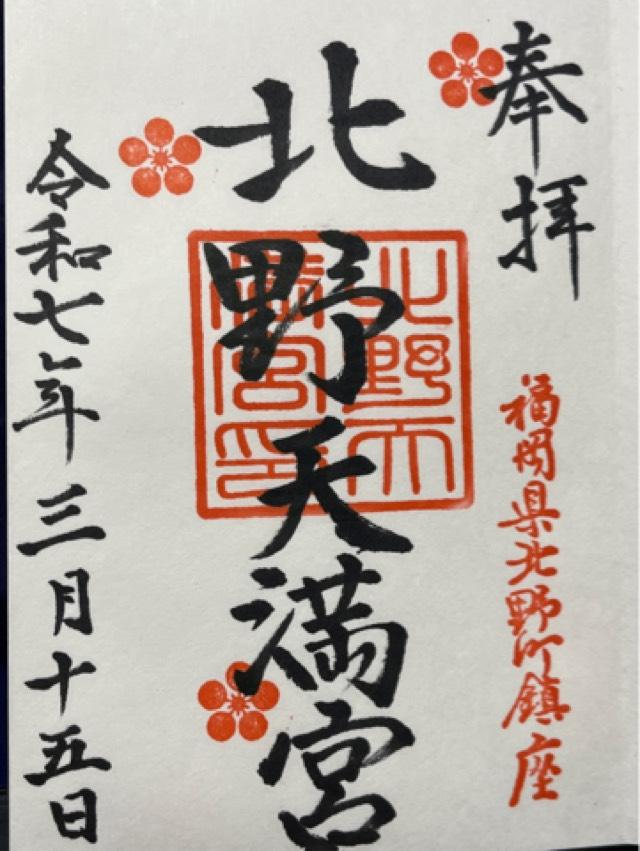 奉拝
福岡県北野町鎮座
北野天満宮
北野天
満宮印
令和七年三月十五日